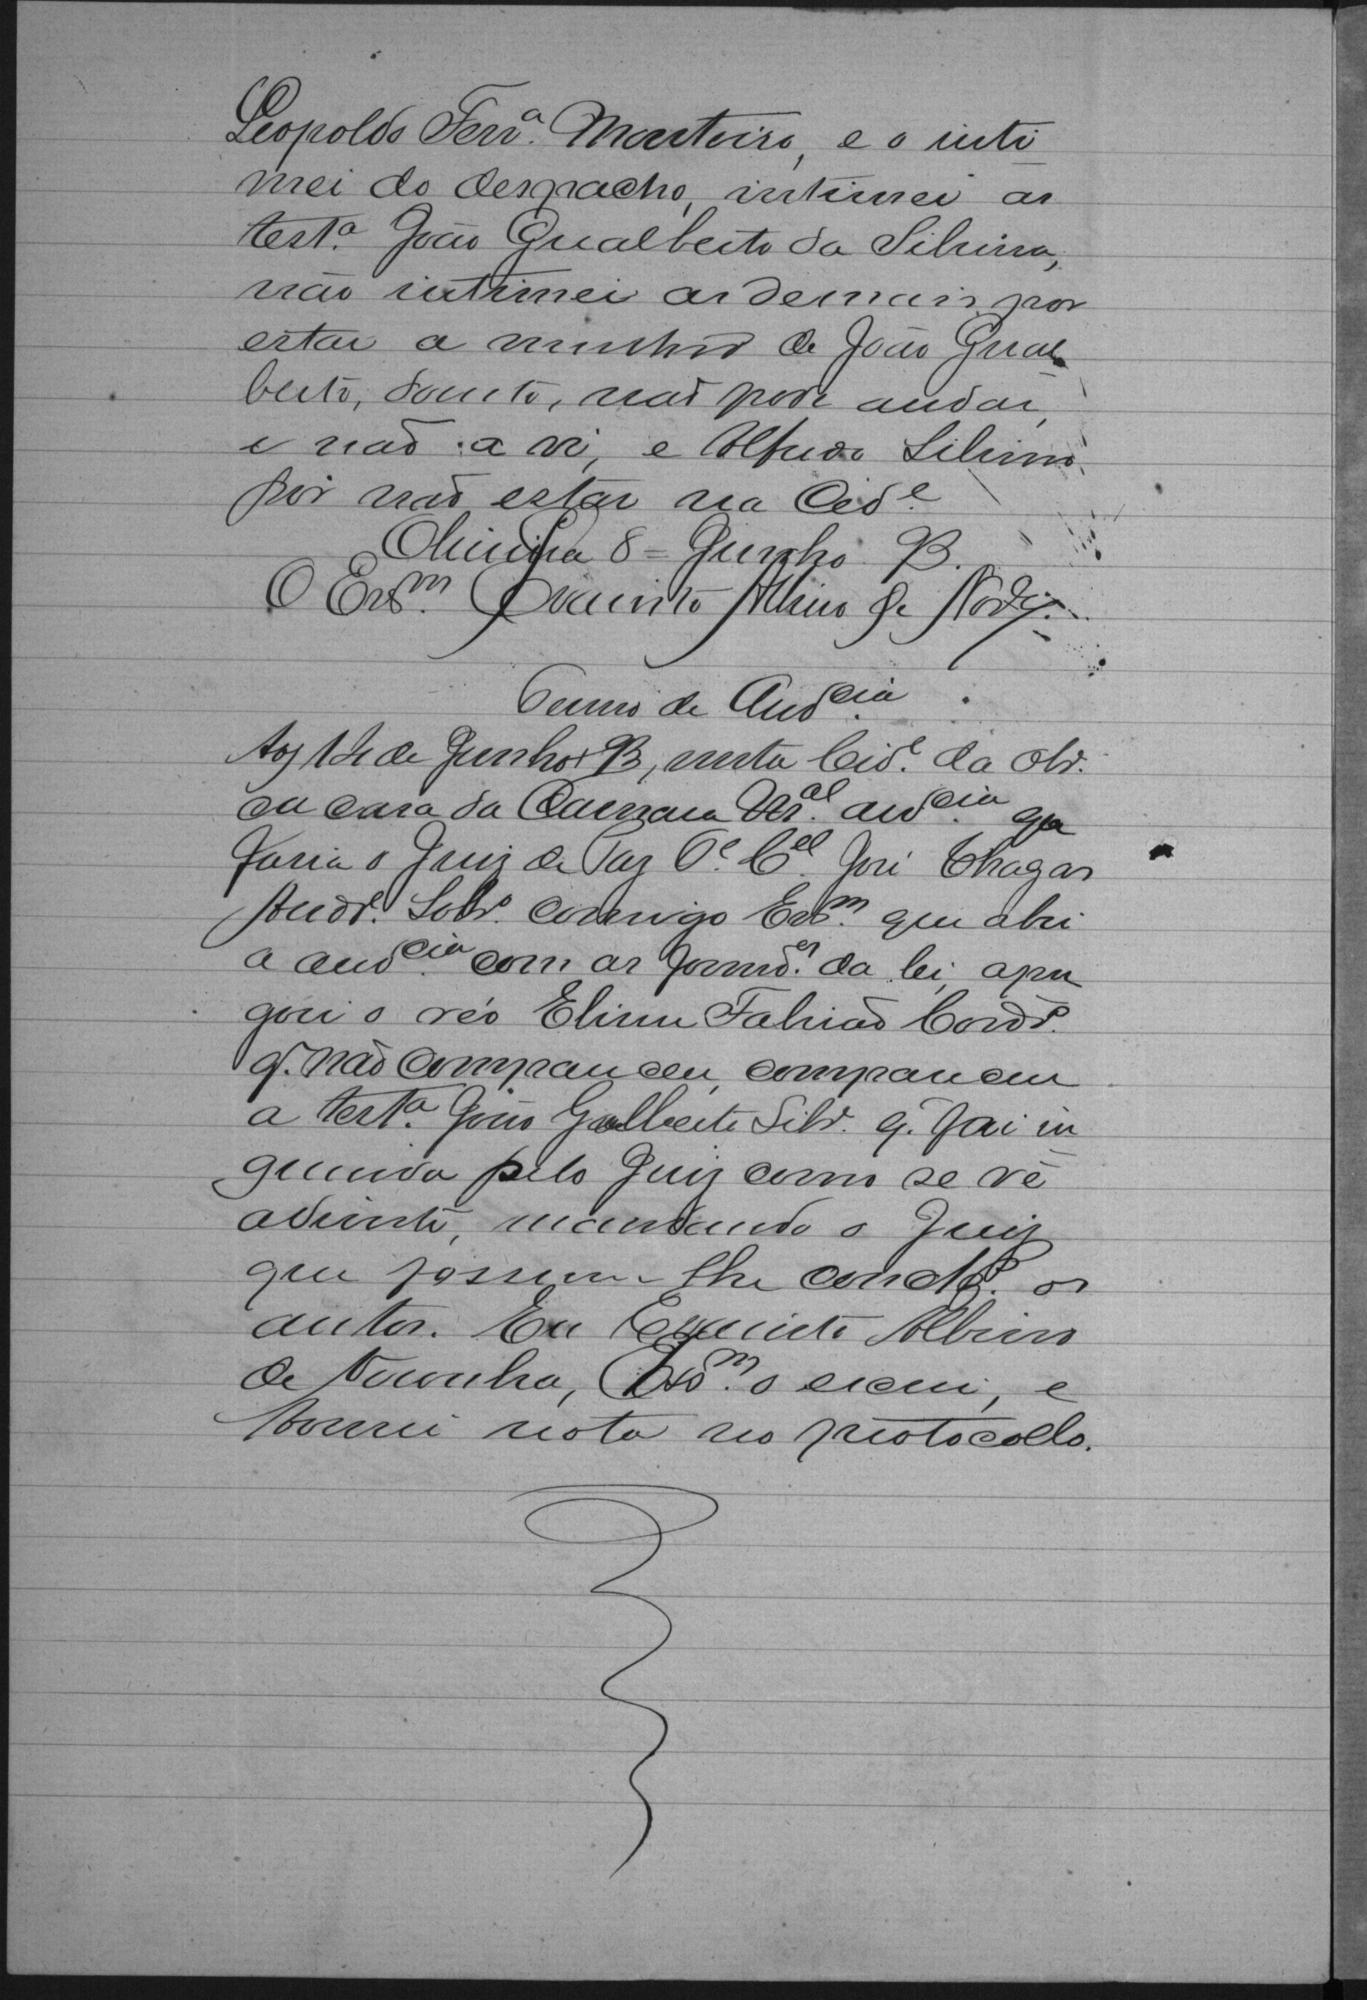 Leopoldo Ferr.ª Monteiro, e o inti
mei do despacho, intimei as
test.ª João Gualberto da Silvina,
não intimei as demais por
estar a mulher de João Gual
berto, doente, não pode andar,
e não a vi, e Alfredo Silvino
por não estar na Cid.e
Oliveira 8 = Junho 93.
O Escr.m Evaristo Albino de Nor.
Termo de Aud.cia
Aos 14 de Junho 93, nesta Cid.e da Olv.
em casa da Camara M.al aud.cia que
fasia o Juiz de Paz T.e C.el José Chagas
Andr.e Sobr.o comigo Escr.m que abri
a aud.cia com as formd.es da lei, apre
goei o réo Elizeu Fabião Cord.o
q. não compareceu, compareceu
a test.ª João Gualberto Silv. q. foi in
querida pelo Juiz como se vê
adiante, mandando o Juiz
que fossem-lhe concl.os os
autos. Eu Evaristo Albino
de Noronha, Escr.m o escrevi, e
tomei nota no protocollo.